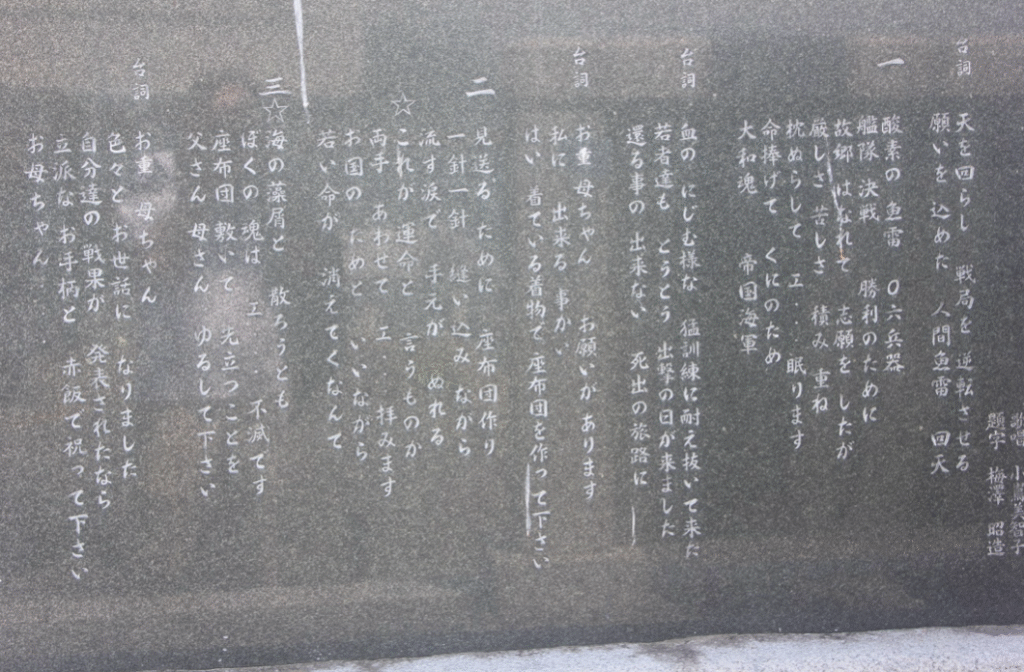 歌唱 小 美智子
題字 梅澤 昭造
台詞 天を回らし 戦局を逆転させる
願いを 込めた 人間魚雷 回天
一 酸素の 魚雷 〇六兵器
艦隊 決戦 勝利のために
故郷 はなれて 志願を したが
厳しさ 苦しさ 積み 重ね
枕ぬらして エ・・眠ります
命捧げて くにのため
大和魂 帝国海軍
台詞 血の にじむ様な 猛訓練に耐え抜いて来た
若者達も とうとう 出撃の日が来ました
還る事の 出来ない 死出の旅路に
台詞 お重 母ちゃん お願いが あります
私に 出来る 事かい
はい 着ている着物で 座布団を作って下さい
二 見送る ために 座布団作り
一針一針 縫い込み ながら
流す涙で 手元が ぬれる
☆これが 運命と 言うものか
両手 あわせて エ・・拝みます
お国の ためと いいながら
若い命が 消えてくなんて
三☆海の藻屑と 散ろうとも
ぼくの 魂は エ・・不滅です
座布団 敷いて 先立つことを
父さん 母さん ゆるして下さい
台詞 お重 母ちゃん
色々と お世話に なりました
自分達の 戦果が 発表されたなら
立派な お手柄と 赤飯で祝って下さい
お母ちゃん